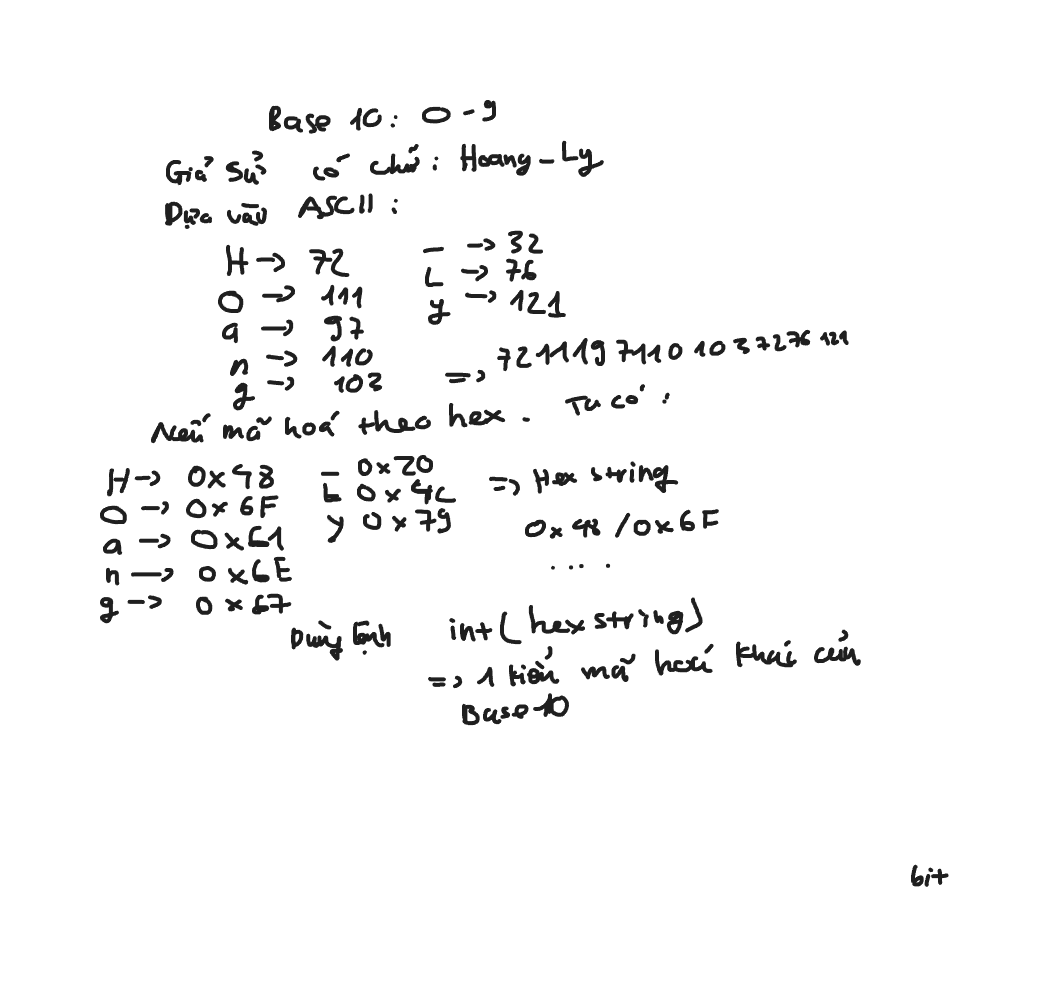 Base 10: 0-9
Giả sử có chữ: Hoang_Ly
Dựa vào ASCII:
H -> 72
o -> 111
a -> 97
n -> 110
g -> 103
_ -> 32
L -> 76
y -> 121
=> 72111971101037276121
Nếu mã hoá theo hex. Ta có:
H -> 0x48
o -> 0x6F
a -> 0x61
n -> 0x6E
g -> 0x67
_ 0x20
L 0x4C
y 0x79
=> Hex string
0x48 / 0x6F
....
Dùng lệnh int(hex string)
=> 1 kiểu mã hoá khác của
Base 10
bit